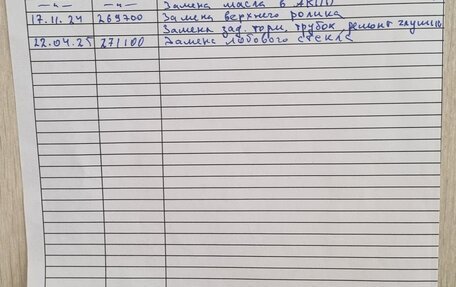 —"— —"— Замена масла в АКПП
17.11.24 269700 Замена верхнего ролика
Замена зад. торм. трубок, ремонт глушит
22.04.25 271100 Замена лобового стекла